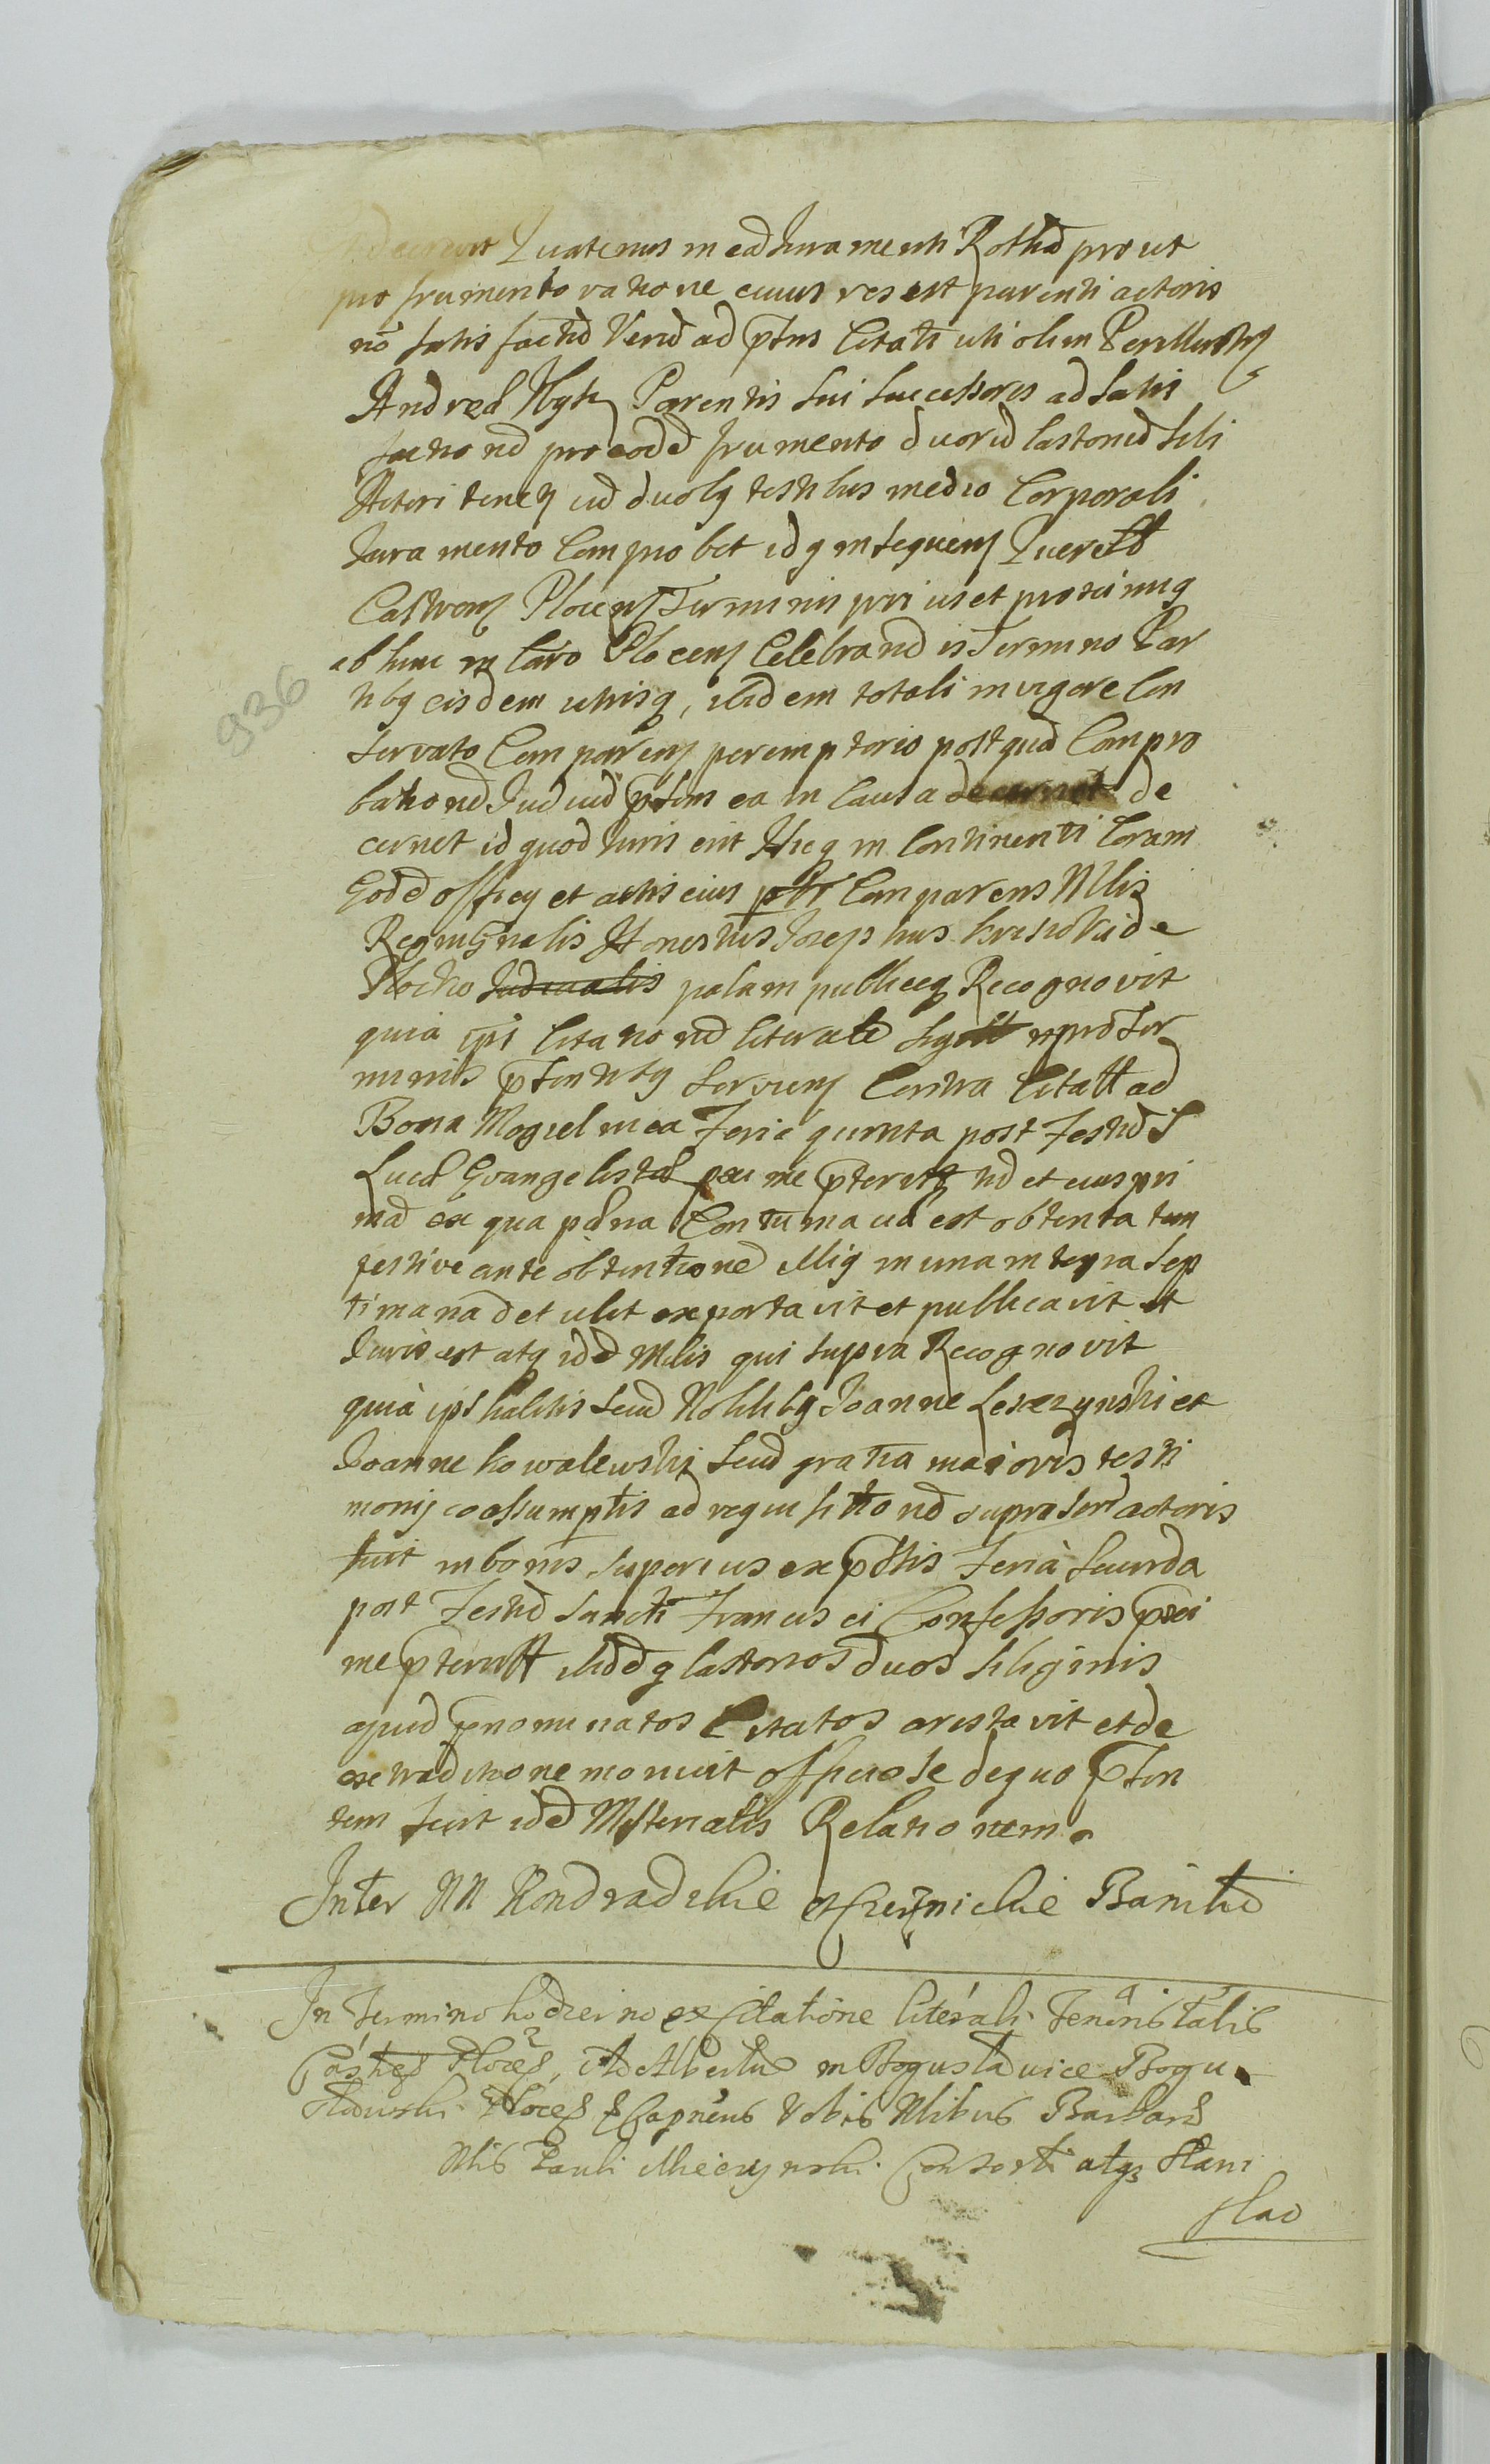 decrevit Quatenus in ead Juramenti Rotha prout
pro frumento ratione cuius res est parenti actoris
nō satis factū Verū ad pntus Citati uti olim Perillustr
Andreæ Parentis sui successores ad satis
factionē pro eodē frumento duorū lastonū sibi
Actori tenen cū duobq testibus medio Corporali
Juramento Comprobet idq in sequen Querell
Castren Plocen Terminis prius et proximiq
ab hinc in Castro Plocen Celebrand is Termino Par
tibq eisdem utrisq, ibidem totali in vigore Con
servato Comparen peremptorio post quā Compro
bationē Judiciū pntm ea in Causa decernet de
cernet id quod Juris erit Hicq in Continenti Coram
Eodē officij et actis eius ptr Comparens Mlis
Regni Gnalis Honestus Josephus de
Plocko Judicialis palam publiceq Recognovit
quia ipse Citationē literalē pro Ter
minis pntibq servien Contra Citatt ad
Bona Mogielnica Feria quinta post Festū S
Lucæ Evangelistæ proxime pteritq nō et cuius pri
mā ex qua pæna Contumaciæ est obtenta tem
pestive ante obtentionē illiq in una integra sep
timana detulit exportavit et publicavit ut
Juris est atq idē Mlis qui supra Recognovit
quià ipse habitis secū Nobilibq Joanne Leszczynski et
Joanne Kowalewski secū gratia maioris testi
monij coassumptis ad requisitionē supra scrī actoris
fuit in bonis superius expssis Feria secunda
post Festū Sancti Francisci Confessoris proxi
me pteritt ibidēq lastonos duos siliginis
apud pnominatos Citatos arestavit et de
extraditione monuit officiose de quo pnsn
tem fecit idē Msterialis Relationem.
Inter NN Kondradzkie et Czernickie Banitio
In Termino hodierno ex Citatione literali Tenoris talis
Castren Plocen, Adalbertus in Bogusławice Bogu
sławski Plocen Capneus Vobis Nlibus Barbaræ
Nlis Pauli Mieczynski Consorti atqz Stani
slao
936